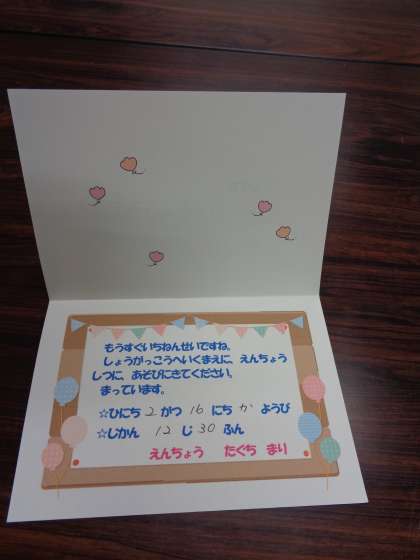 もうすぐいちねんせいですね。
しょうがっこうへいくまえに、えんちょう
しつに、あそびにきてください。
まっています。
☆ひにち 2 がつ 16 にち か ようび
☆じかん 12 じ 30 ふん
えんちょう たぐち まり